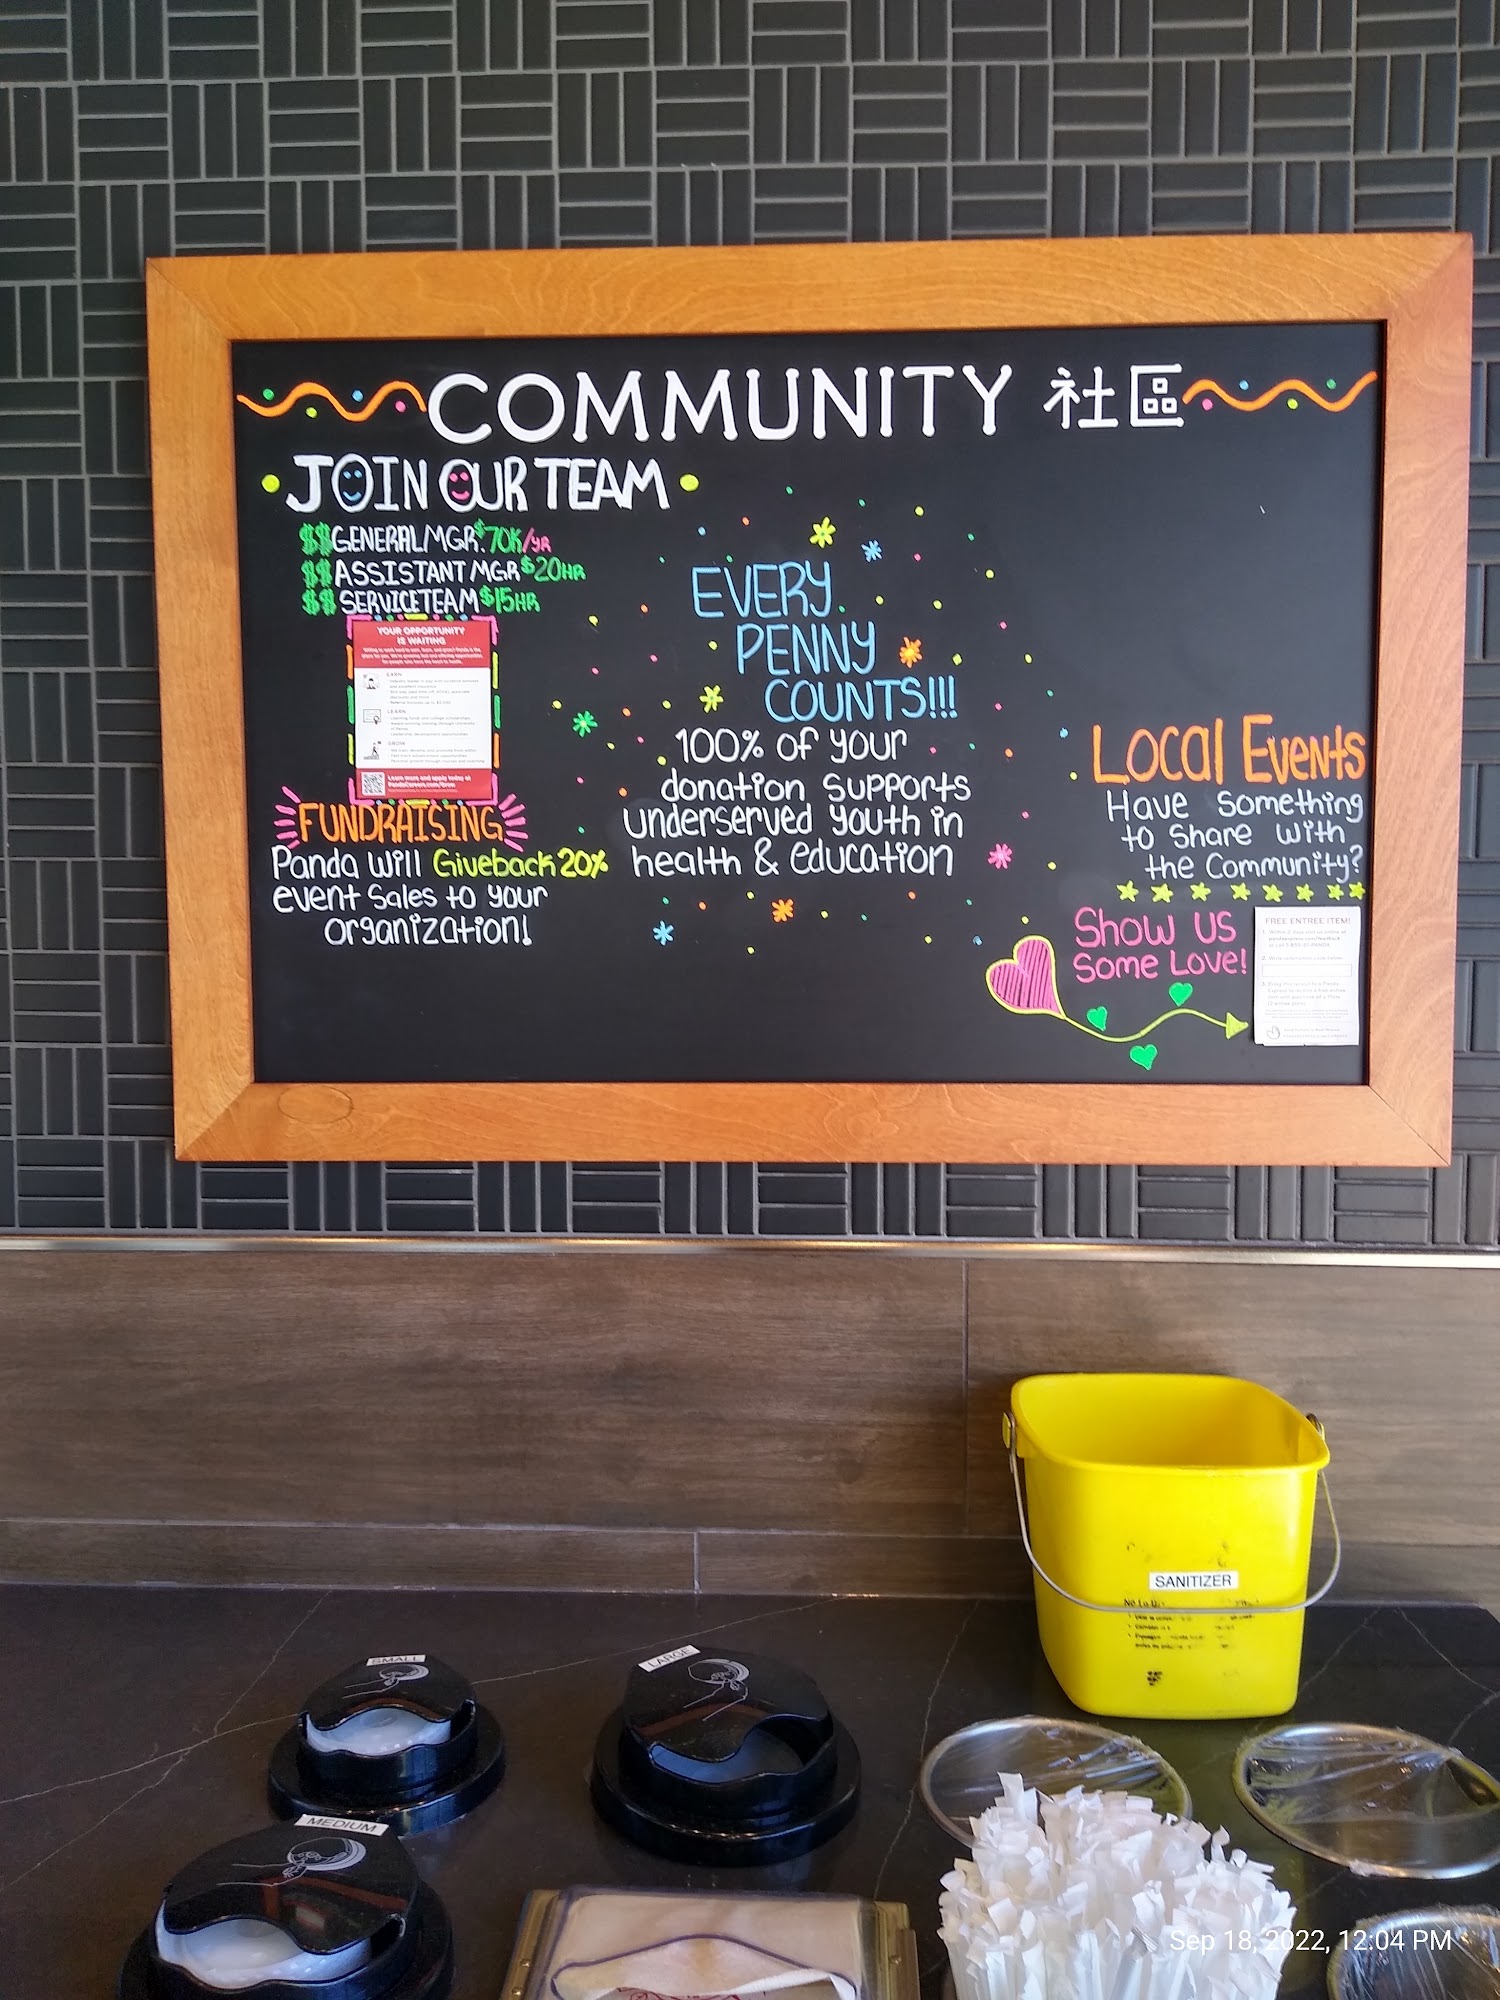 COMMUNITY 社區
JOIN OUR TEAM
$$ GENERAL MGR. $70K/YR
$$ ASSISTANT MGR $20HR
$$ SERVICE TEAM $15HR
YOUR OPPORTUNITY
IS WAITING
EARN
LEARN
GROW
Learn more and apply today at
PandaCareers.com/Grow
FUNDRAISING
Panda will Giveback 20%
event Sales to your
organization!
EVERY
PENNY
COUNTS!!!
100% of your
donation supports
underserved youth in
health & education
Local Events
Have Something
to Share with
the Community?
Show us
Some Love!
FREE ENTREE ITEM!
SANITIZER
SMALL
LARGE
MEDIUM
Sep 18, 2022, 12:04 PM